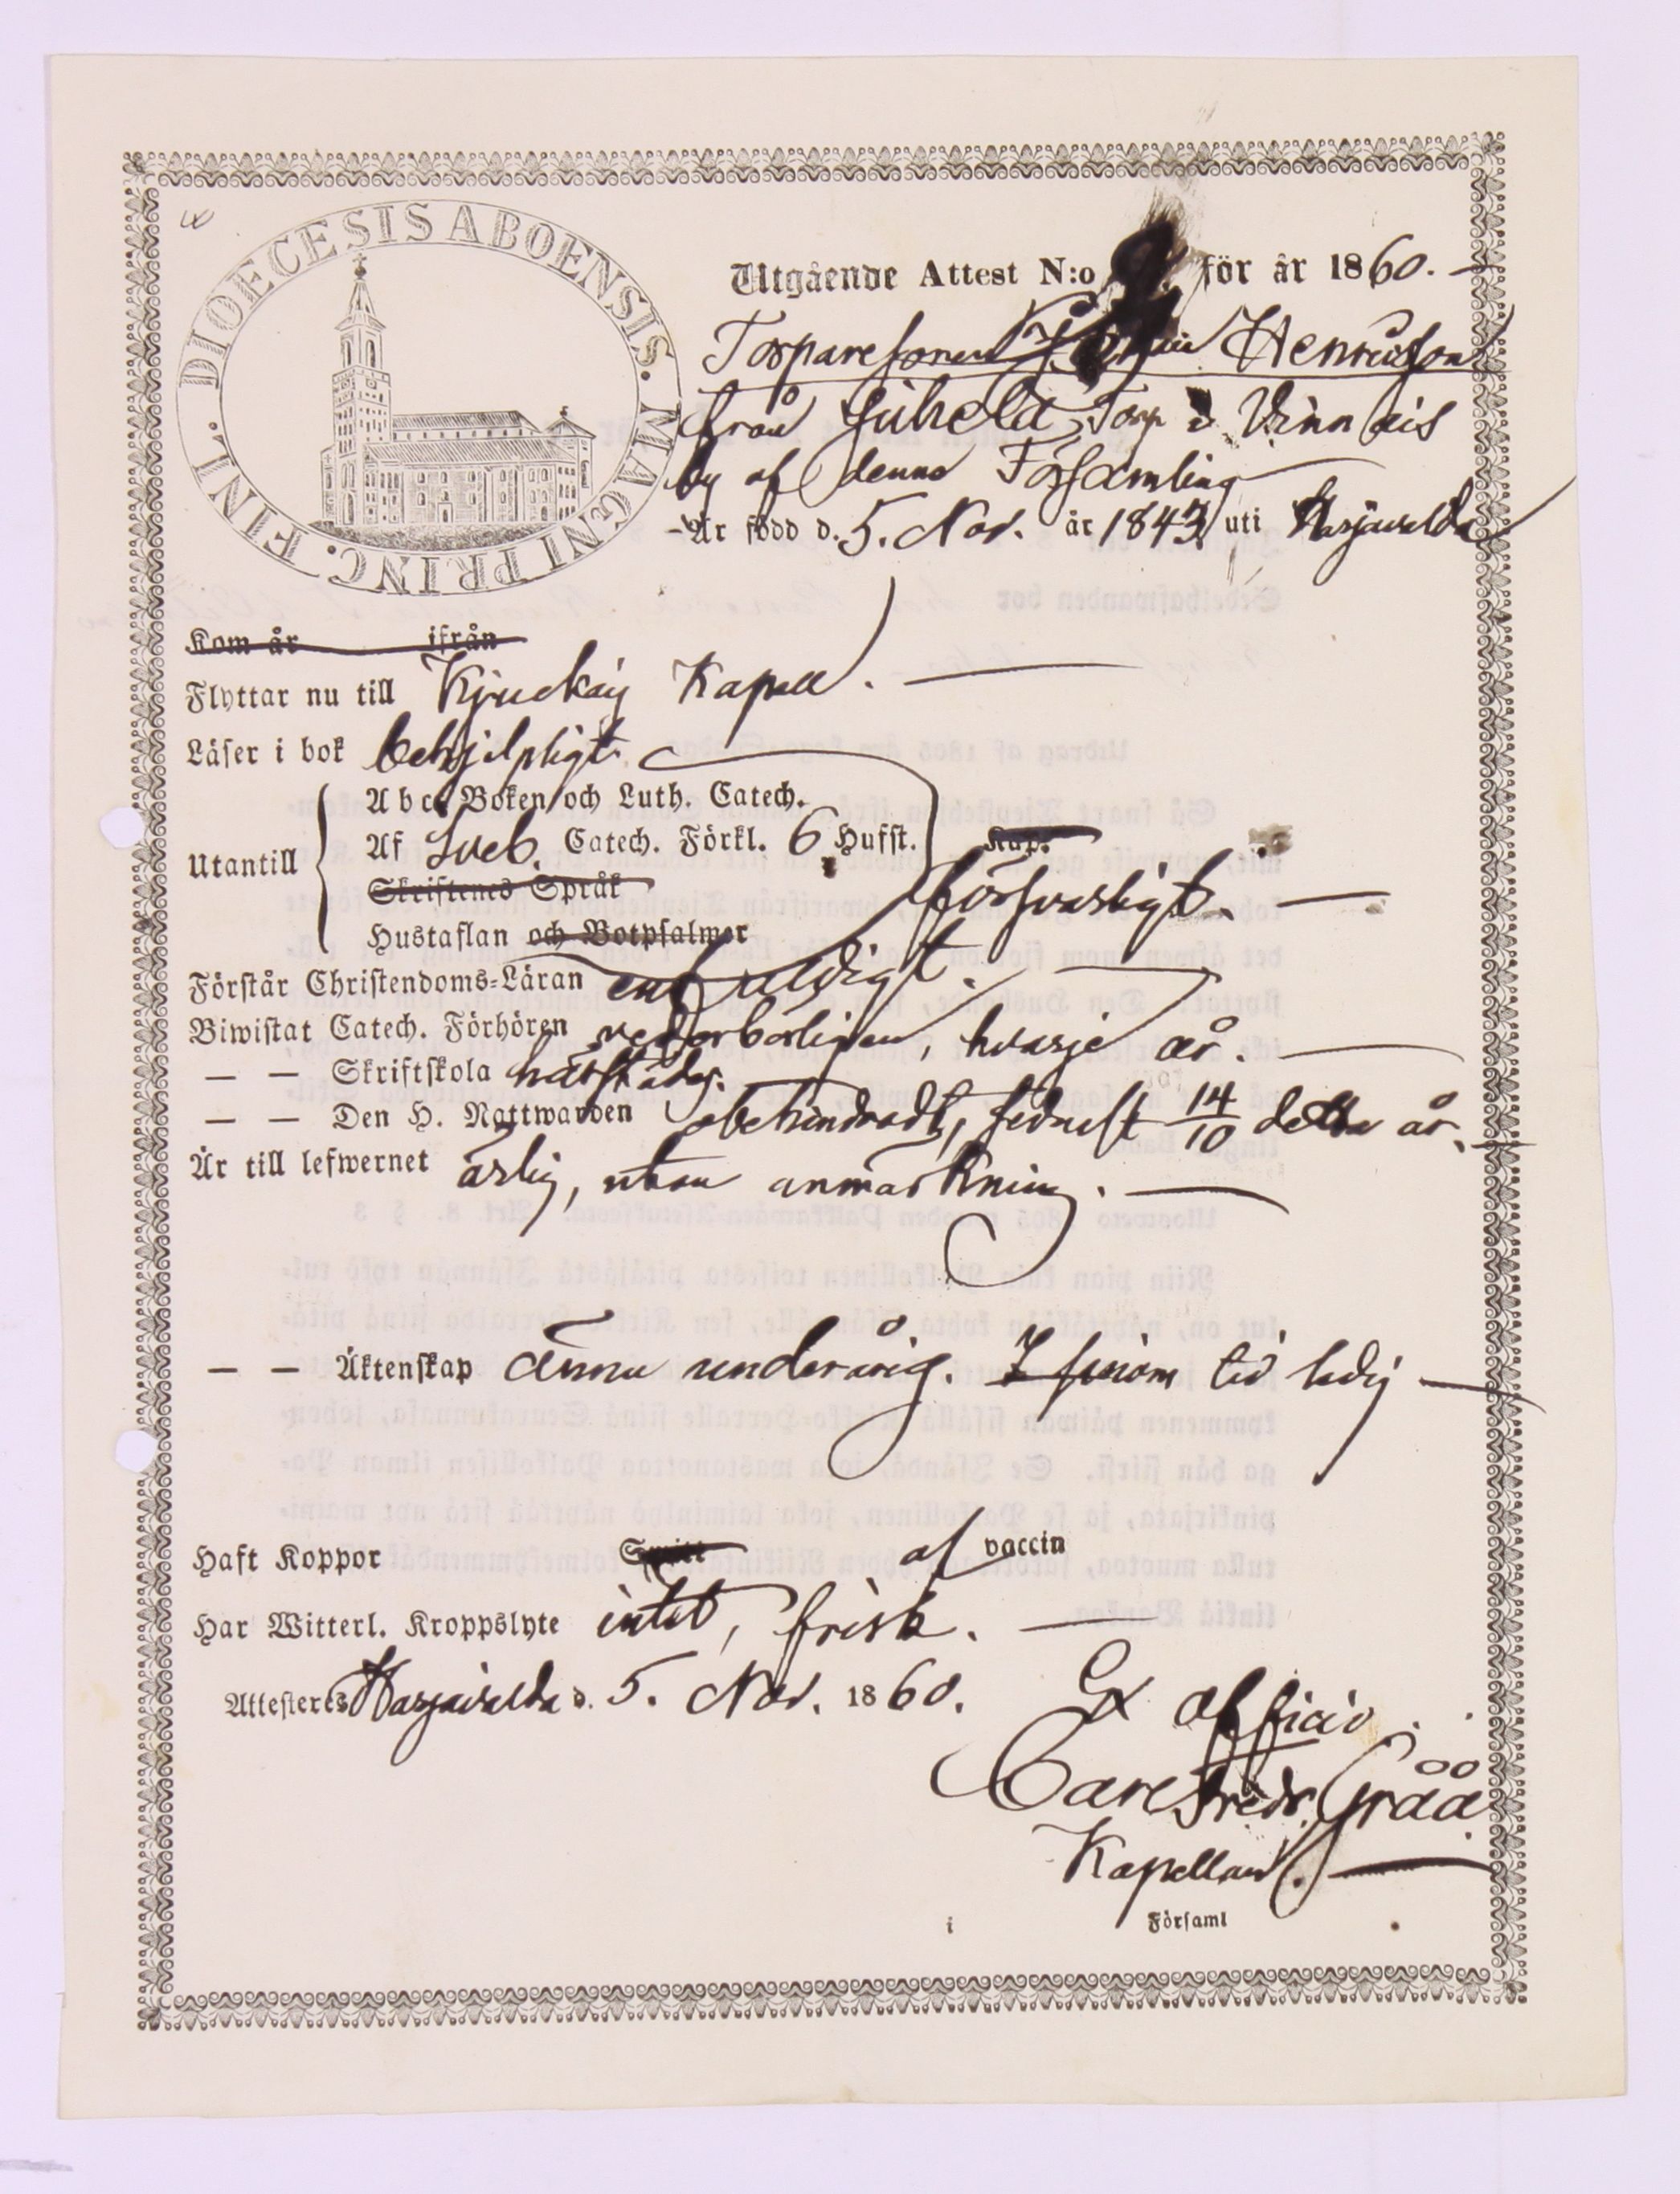 DIOECESIS ABOENSIS. MAGNI PRINC. FINL.
Utgående Attest N:o för år 1860.
Torparesonen Henriksson
från Juhela Torp i Vinnais
by af denna Församling
Är född d. 5. Nov. år 1843 uti Harjavalda
Kom år ifrån
Flyttar nu till Kjuckais Kapell.
Läser i bok behjelpligt
Utantill
Abc Boken och Luth. Catech.
Af Sveb. Catech. Förkl. 6 Hufst. Kap.
Skriftenes Språk försvarligt.
Hustaflan och Botpsalmer
Förstår Christendoms-Läran enfaldigt.
Biwistat Catech. Förhören vederbörligen, hvarje år.
— — Skriftskola härstädes.
— — Den H. Nattwarden obehindradt, sednast 14/10 detta år.
Är till lefwernet ärlig, utan anmärkning.
— — Äktenskap ännu underårig. I tid ledig
Haft Koppor Smitt af vaccin
Har Witterl. Kroppslyte intet, frisk.
Attesteres Harjavalda d. 5. Nov. 1860.
Ex officio
Carl Fredr. Gråå
Kapellan.
i Församl